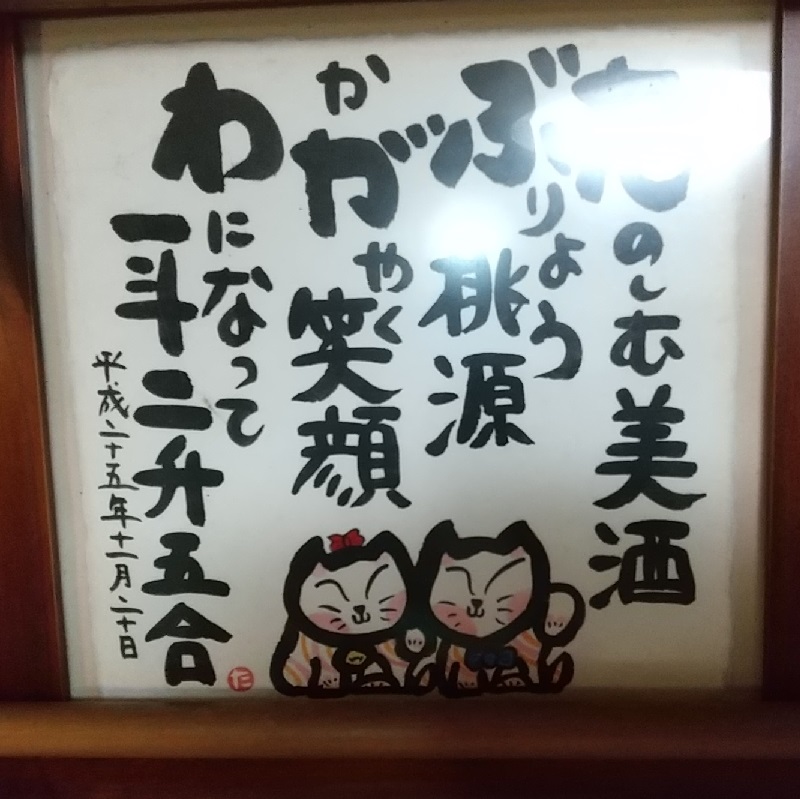 たのしむ美酒
ぶりょう桃源
かがやく笑顔
わになって
一斗二升五合
平成二十五年十一月二十日
た